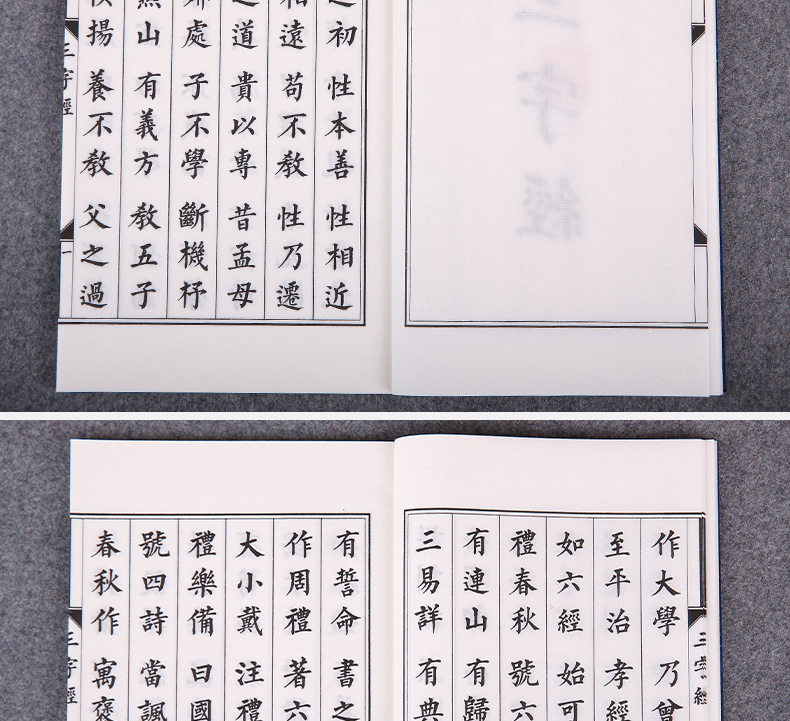 三字經
初 性本善 性相近
相遠 苟不教 性乃遷
之道 貴以專 昔孟母
處 子不學 斷機杼
山 有義方 教五子
揚 養不教 父之過
三字經 一
三字經
作大學 乃曾
至平治 孝經
如六經 始可
禮春秋 號六
有連山 有歸
三易詳 有典
有誓命 書之
作周禮 著六
大小戴 注禮
禮樂備 曰國
號四詩 當諷
春秋作 寓褒
三字經